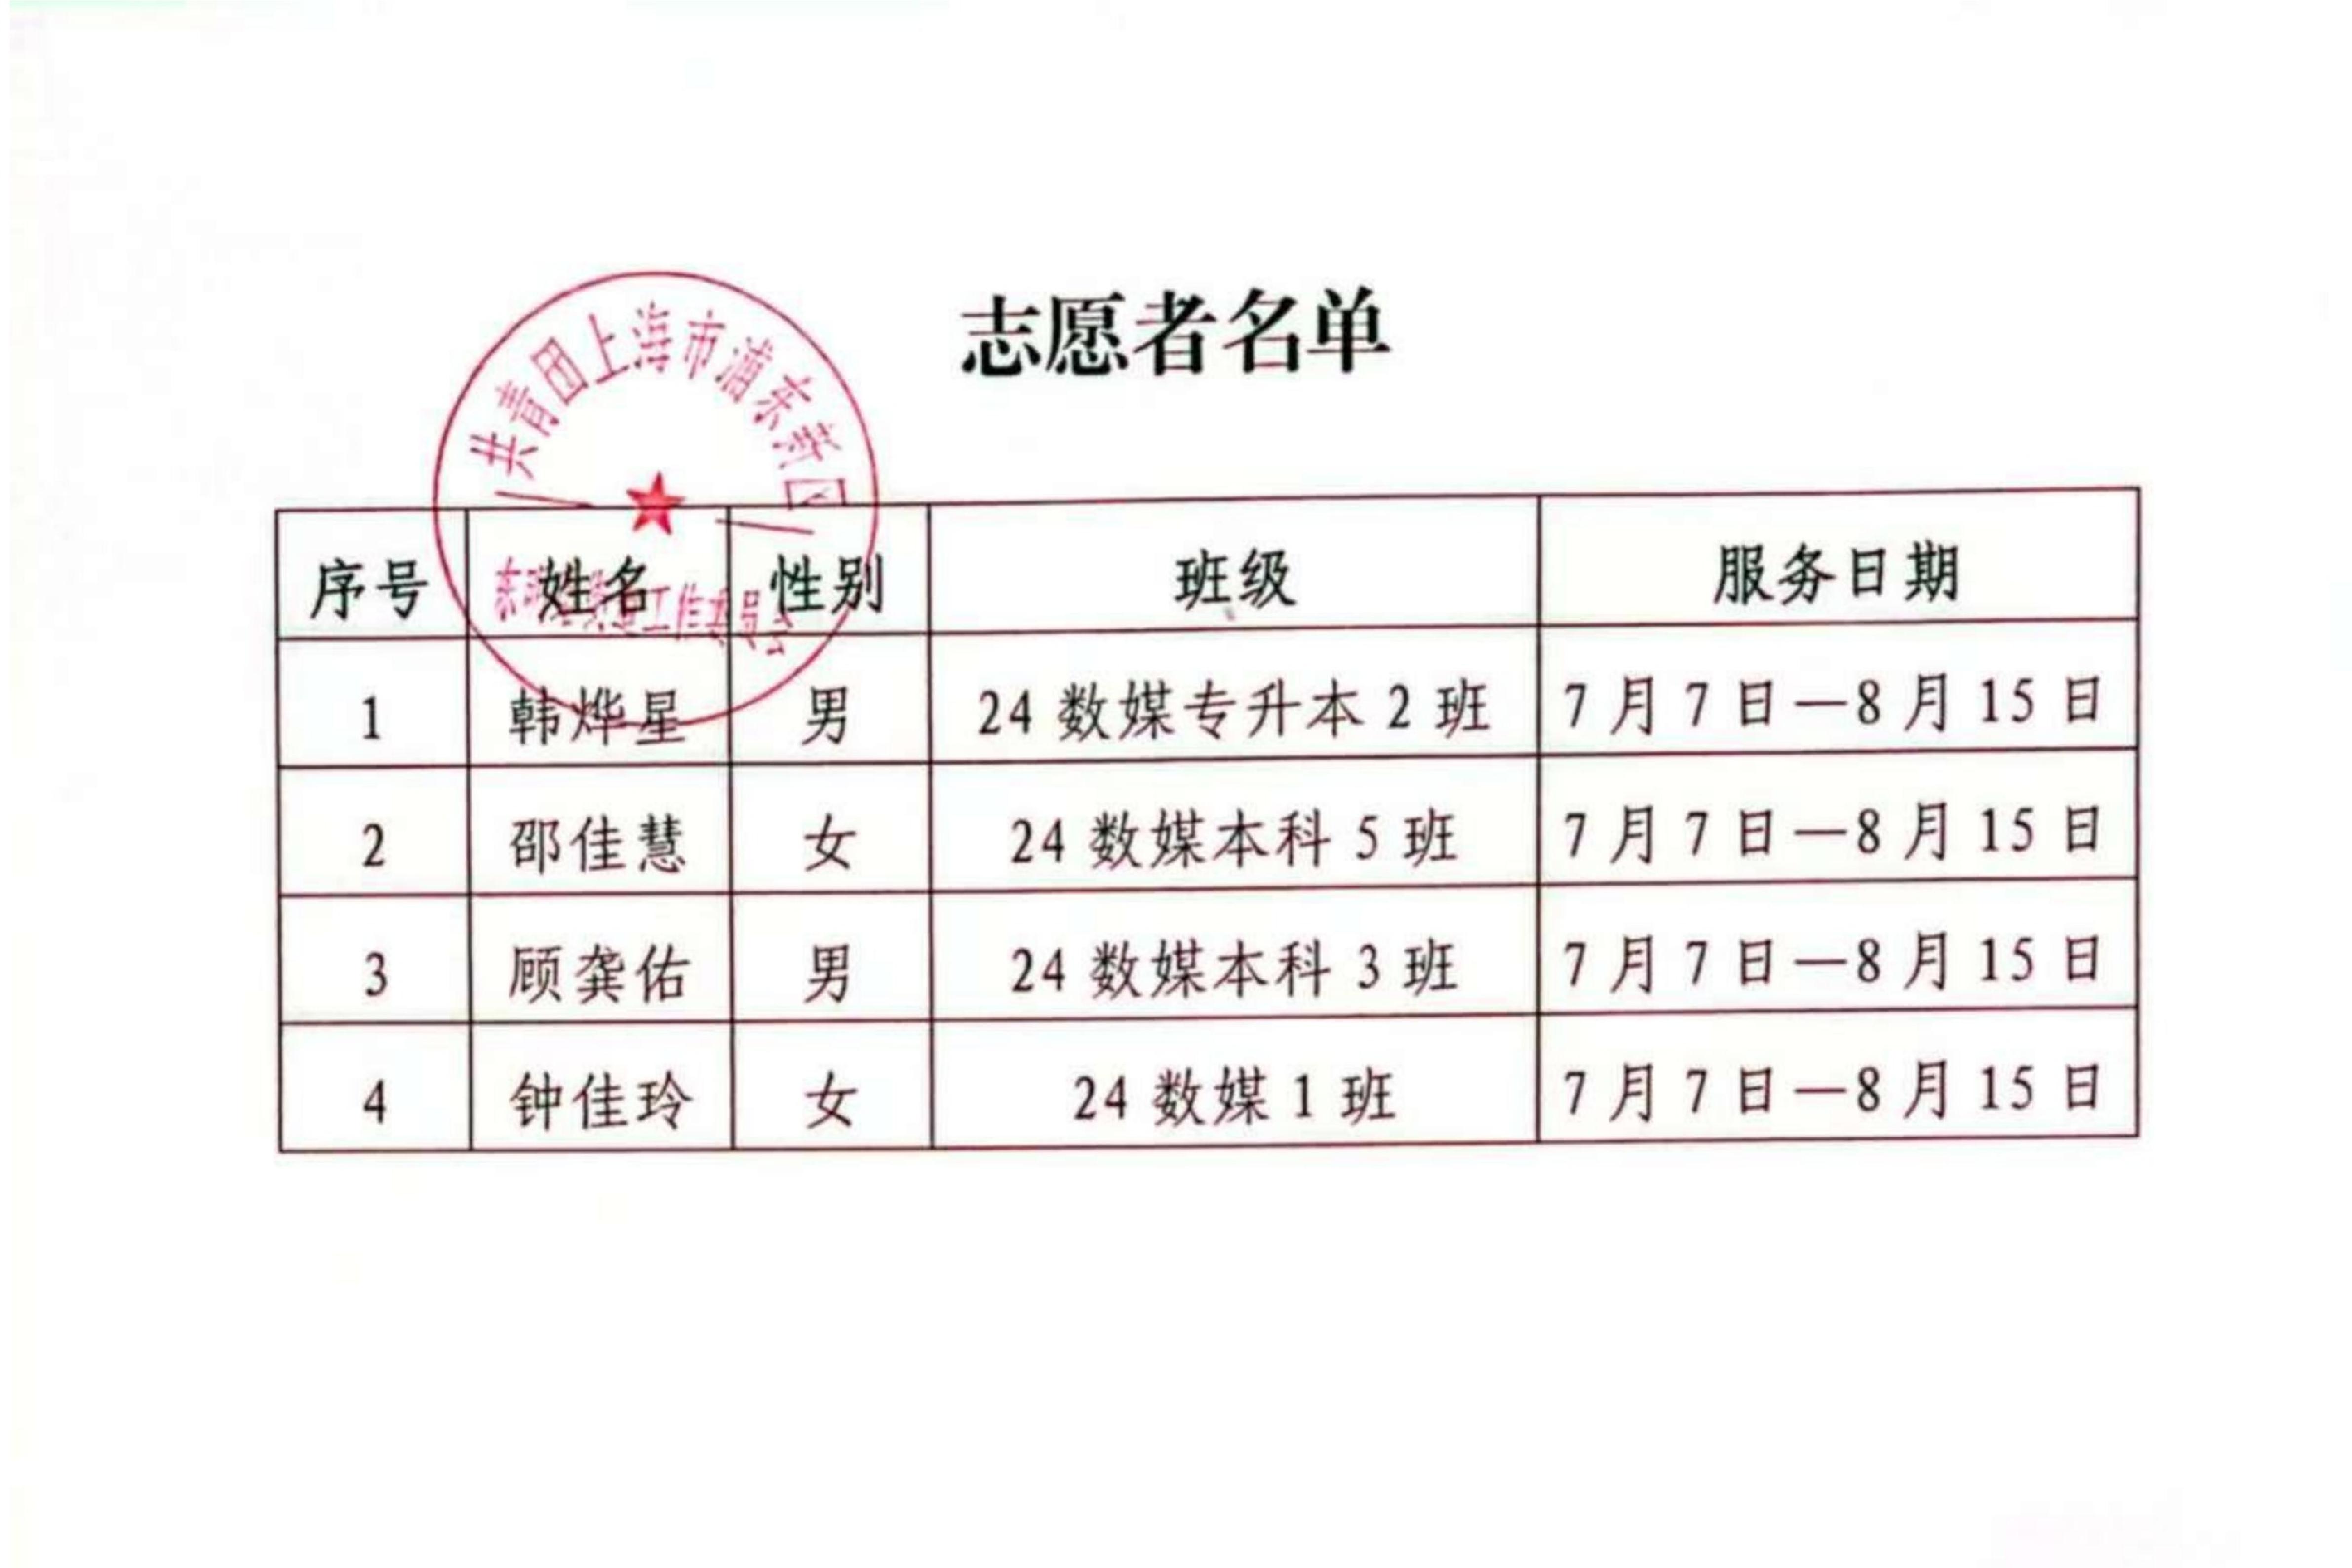 志愿者名单
共青团上海市浦东新区
工作委员会
序号 姓名 性别 班级 服务日期
1 韩烨星 男 24 数媒专升本 2 班 7 月 7 日—8 月 15 日
2 邵佳慧 女 24 数媒本科 5 班 7 月 7 日—8 月 15 日
3 顾龚佑 男 24 数媒本科 3 班 7 月 7 日—8 月 15 日
4 钟佳玲 女 24 数媒 1 班 7 月 7 日—8 月 15 日